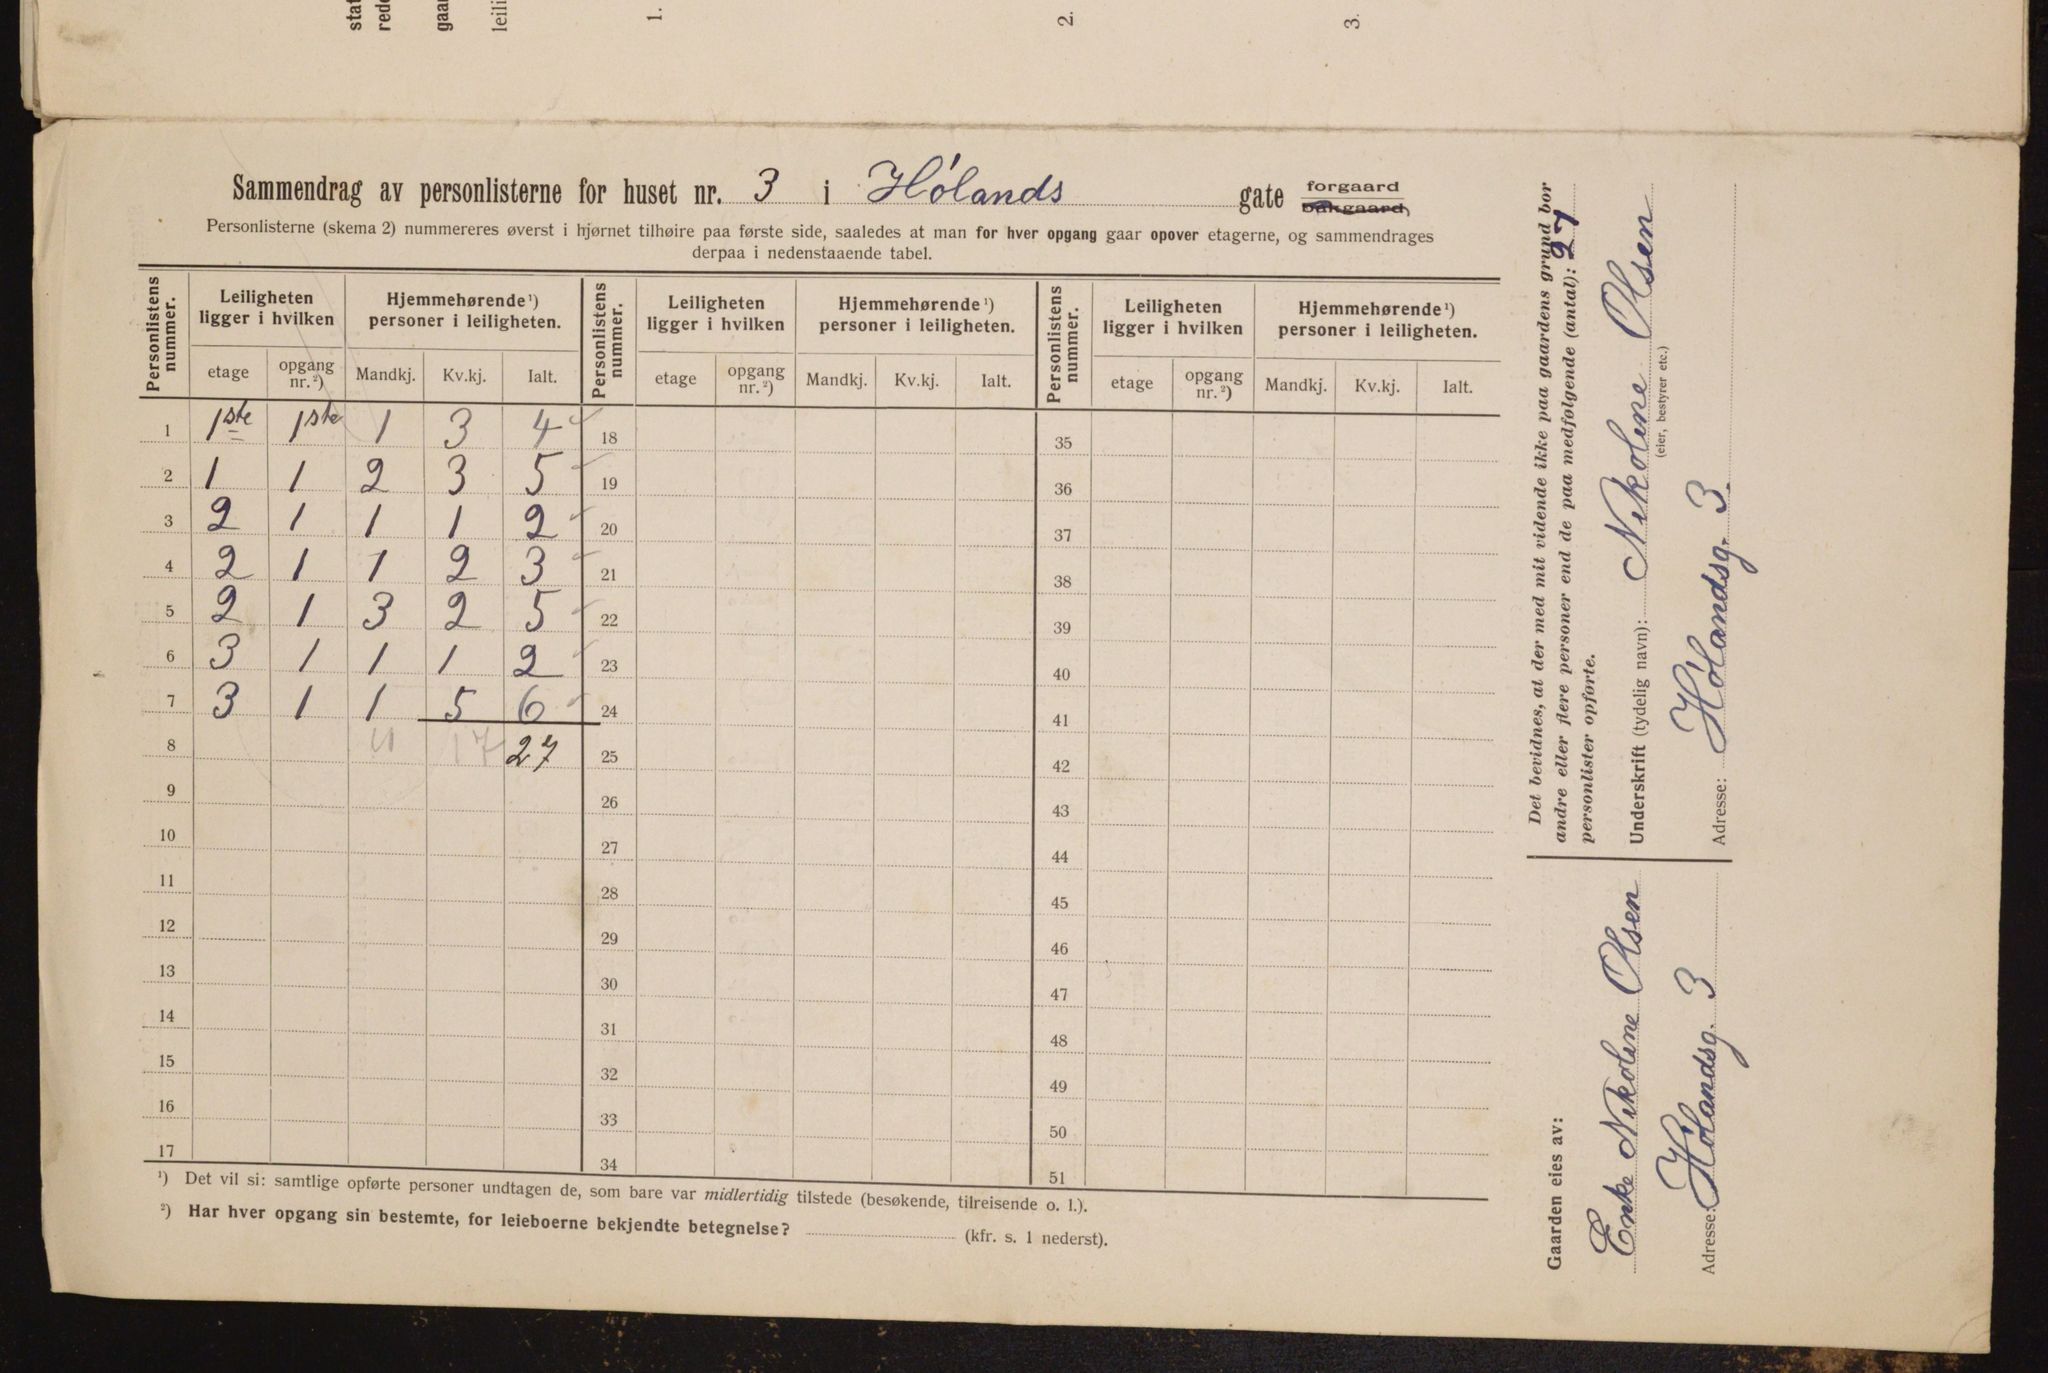 stat
rede
gaar
leili
1.
2.
3.
Sammendrag av personlisterne for huset nr. 3 i Hólands gate forgaard
bakgaard,
Personlisterne (skema 2) nummereres øverst i hjørnet tilhøire paa første side, saaledes at man for hver opgang gaar opover etagerne, og sammendrages
derpaa i nedenstaaende tabel.
Personlistens nummer. Leiligheten ligger i hvilken Hjemmehørende¹) personer i leiligheten. Personlistens nummer. Leiligheten ligger i hvilken Hjemmehørende¹) personer i leiligheten. Personlistens nummer. Leiligheten ligger i hvilken Hjemmehørende¹) personer i leiligheten.
etage opgang nr.²) Mandkj. Kv.kj. Ialt. etage opgang nr.²) Mandkj. Kv.kj. Ialt. etage opgang nr.²) Mandkj. Kv.kj. Ialt.
1 1ste 1ste 1 3 4 18 35
2 1 1 2 3 5 19 36
3 2 1 1 1 2 20 37
4 2 1 1 2 3 21 38
5 2 1 3 2 5 22 39
6 3 1 1 1 2 23 40
7 3 1 1 5 6 24 41
8 17 27 25 42
9 26 43
10 27 44
11 28 45
12 29 46
13 30 47
14 31 48
15 32 49
16 33 50
17 34 51
¹) Det vil si: samtlige opførte personer undtagen de, som bare var midlertidig tilstede (besøkende, tilreisende o. l.).
²) Har hver opgang sin bestemte, for leieboerne bekjendte betegnelse? (kfr. s. 1 nederst).
Det bevidnes, at der med mit vidende ikke paa gaardens grund bor
andre eller flere personer end de paa medfølgende (antal): 27
personlister opførte.
Underskrift (tydelig navn): Nikoline Olsen
(eier, bestyrer etc.)
Adresse: Hólandsg. 3.
Gaarden eies av:
Enke Nikoline Olsen
Adresse: Hólandsg. 3